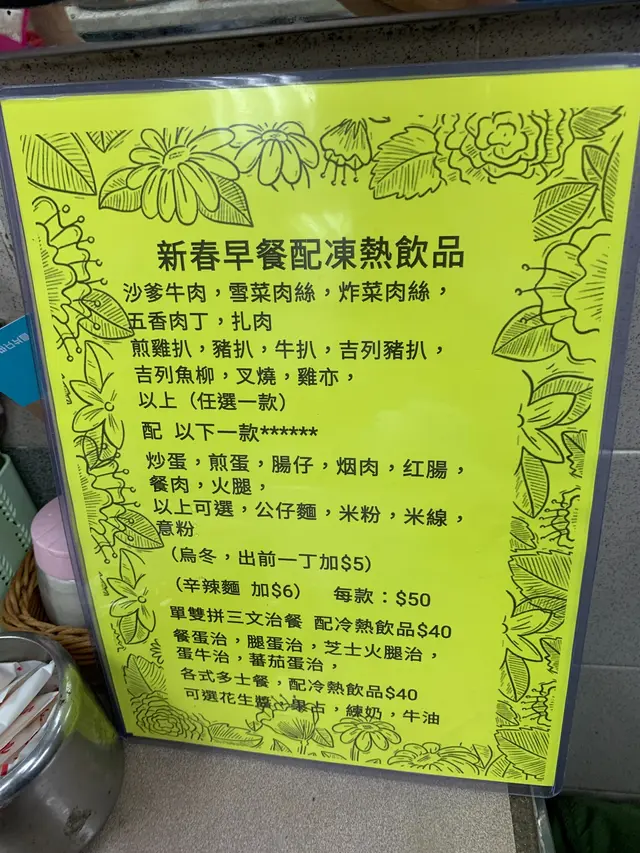 新春早餐配凍熱飲品
沙爹牛肉，雪菜肉絲，炸菜肉絲，
五香肉丁，扎肉
煎雞扒，豬扒，牛扒，吉列豬扒，
吉列魚柳，叉燒，雞亦，
以上（任選一款）
配 以下一款******
炒蛋，煎蛋，腸仔，烟肉，红腸，
餐肉，火腿，
以上可選，公仔麵，米粉，米線，
意粉
（烏冬，出前一丁加$5）
（辛辣麵 加$6） 每款：$50
單雙拼三文治餐 配冷熱飲品$40
餐蛋治，腿蛋治，芝士火腿治，
蛋牛治，蕃茄蛋治，
各式多士餐，配冷熱飲品$40
可選花生醬，占，練奶，牛油